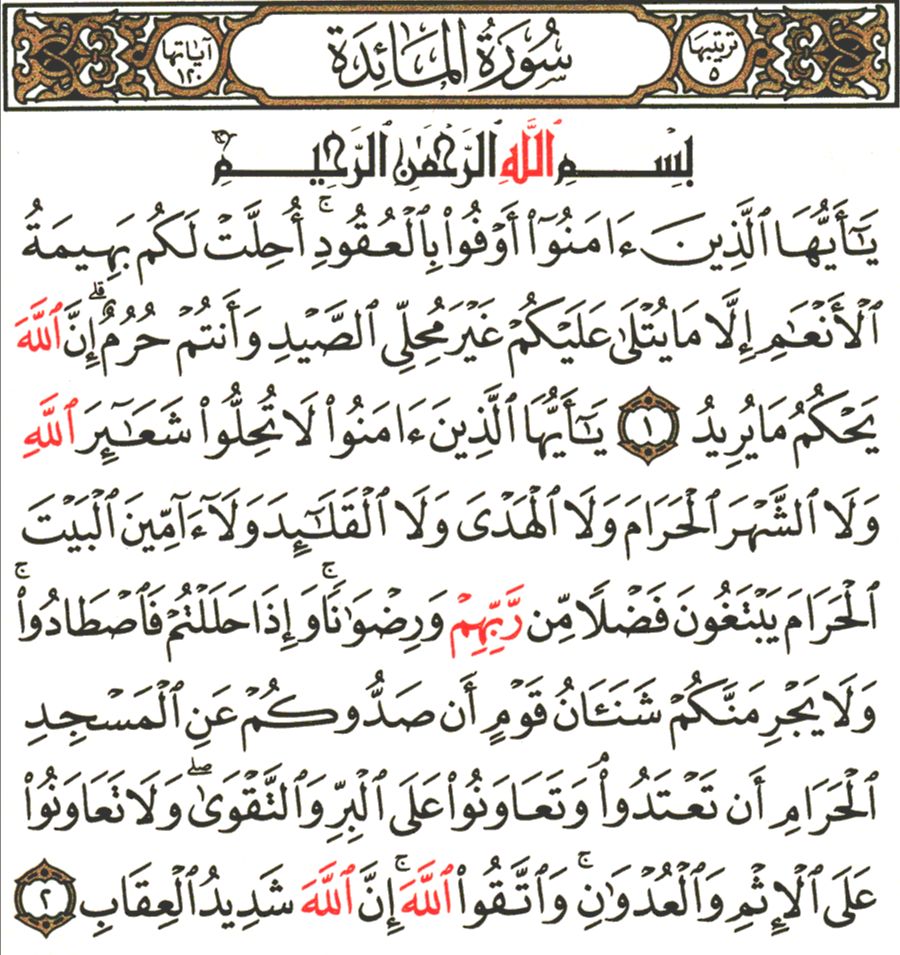 ترتيبها ٥ سُورَةُ المَائِدَةِ آياتها ١٢٠
بِسۡمِ ٱللَّهِ ٱلرَّحۡمَٰنِ ٱلرَّحِيمِ
يَٰٓأَيُّهَا ٱلَّذِينَ ءَامَنُوٓاْ أَوۡفُواْ بِٱلۡعُقُودِۚ أُحِلَّتۡ لَكُم بَهِيمَةُ
ٱلۡأَنۡعَٰمِ إِلَّا مَا يُتۡلَىٰ عَلَيۡكُمۡ غَيۡرَ مُحِلِّي ٱلصَّيۡدِ وَأَنتُمۡ حُرُمٌۗ إِنَّ ٱللَّهَ
يَحۡكُمُ مَا يُرِيدُ ١ يَٰٓأَيُّهَا ٱلَّذِينَ ءَامَنُواْ لَا تُحِلُّواْ شَعَٰٓئِرَ ٱللَّهِ
وَلَا ٱلشَّهۡرَ ٱلۡحَرَامَ وَلَا ٱلۡهَدۡيَ وَلَا ٱلۡقَلَٰٓئِدَ وَلَآ ءَآمِّينَ ٱلۡبَيۡتَ
ٱلۡحَرَامَ يَبۡتَغُونَ فَضۡلٗا مِّن رَّبِّهِمۡ وَرِضۡوَٰنٗاۚ وَإِذَا حَلَلۡتُمۡ فَٱصۡطَادُواْۚ
وَلَا يَجۡرِمَنَّكُمۡ شَنَـَٔانُ قَوۡمٍ أَن صَدُّوكُمۡ عَنِ ٱلۡمَسۡجِدِ
ٱلۡحَرَامِ أَن تَعۡتَدُواْۘ وَتَعَاوَنُواْ عَلَى ٱلۡبِرِّ وَٱلتَّقۡوَىٰۖ وَلَا تَعَاوَنُواْ
عَلَى ٱلۡإِثۡمِ وَٱلۡعُدۡوَٰنِۚ وَٱتَّقُواْ ٱللَّهَۚ إِنَّ ٱللَّهَ شَدِيدُ ٱلۡعِقَابِ ٢